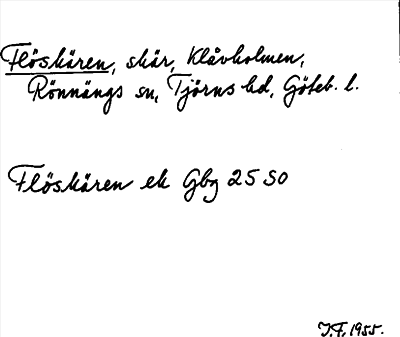 Flöskären, skär, Klåvholmen,
Rönnängs sn, Tjörns hd, Göteb. l.
Flöskären ek Gbg 25 SO
I.F. 1955.